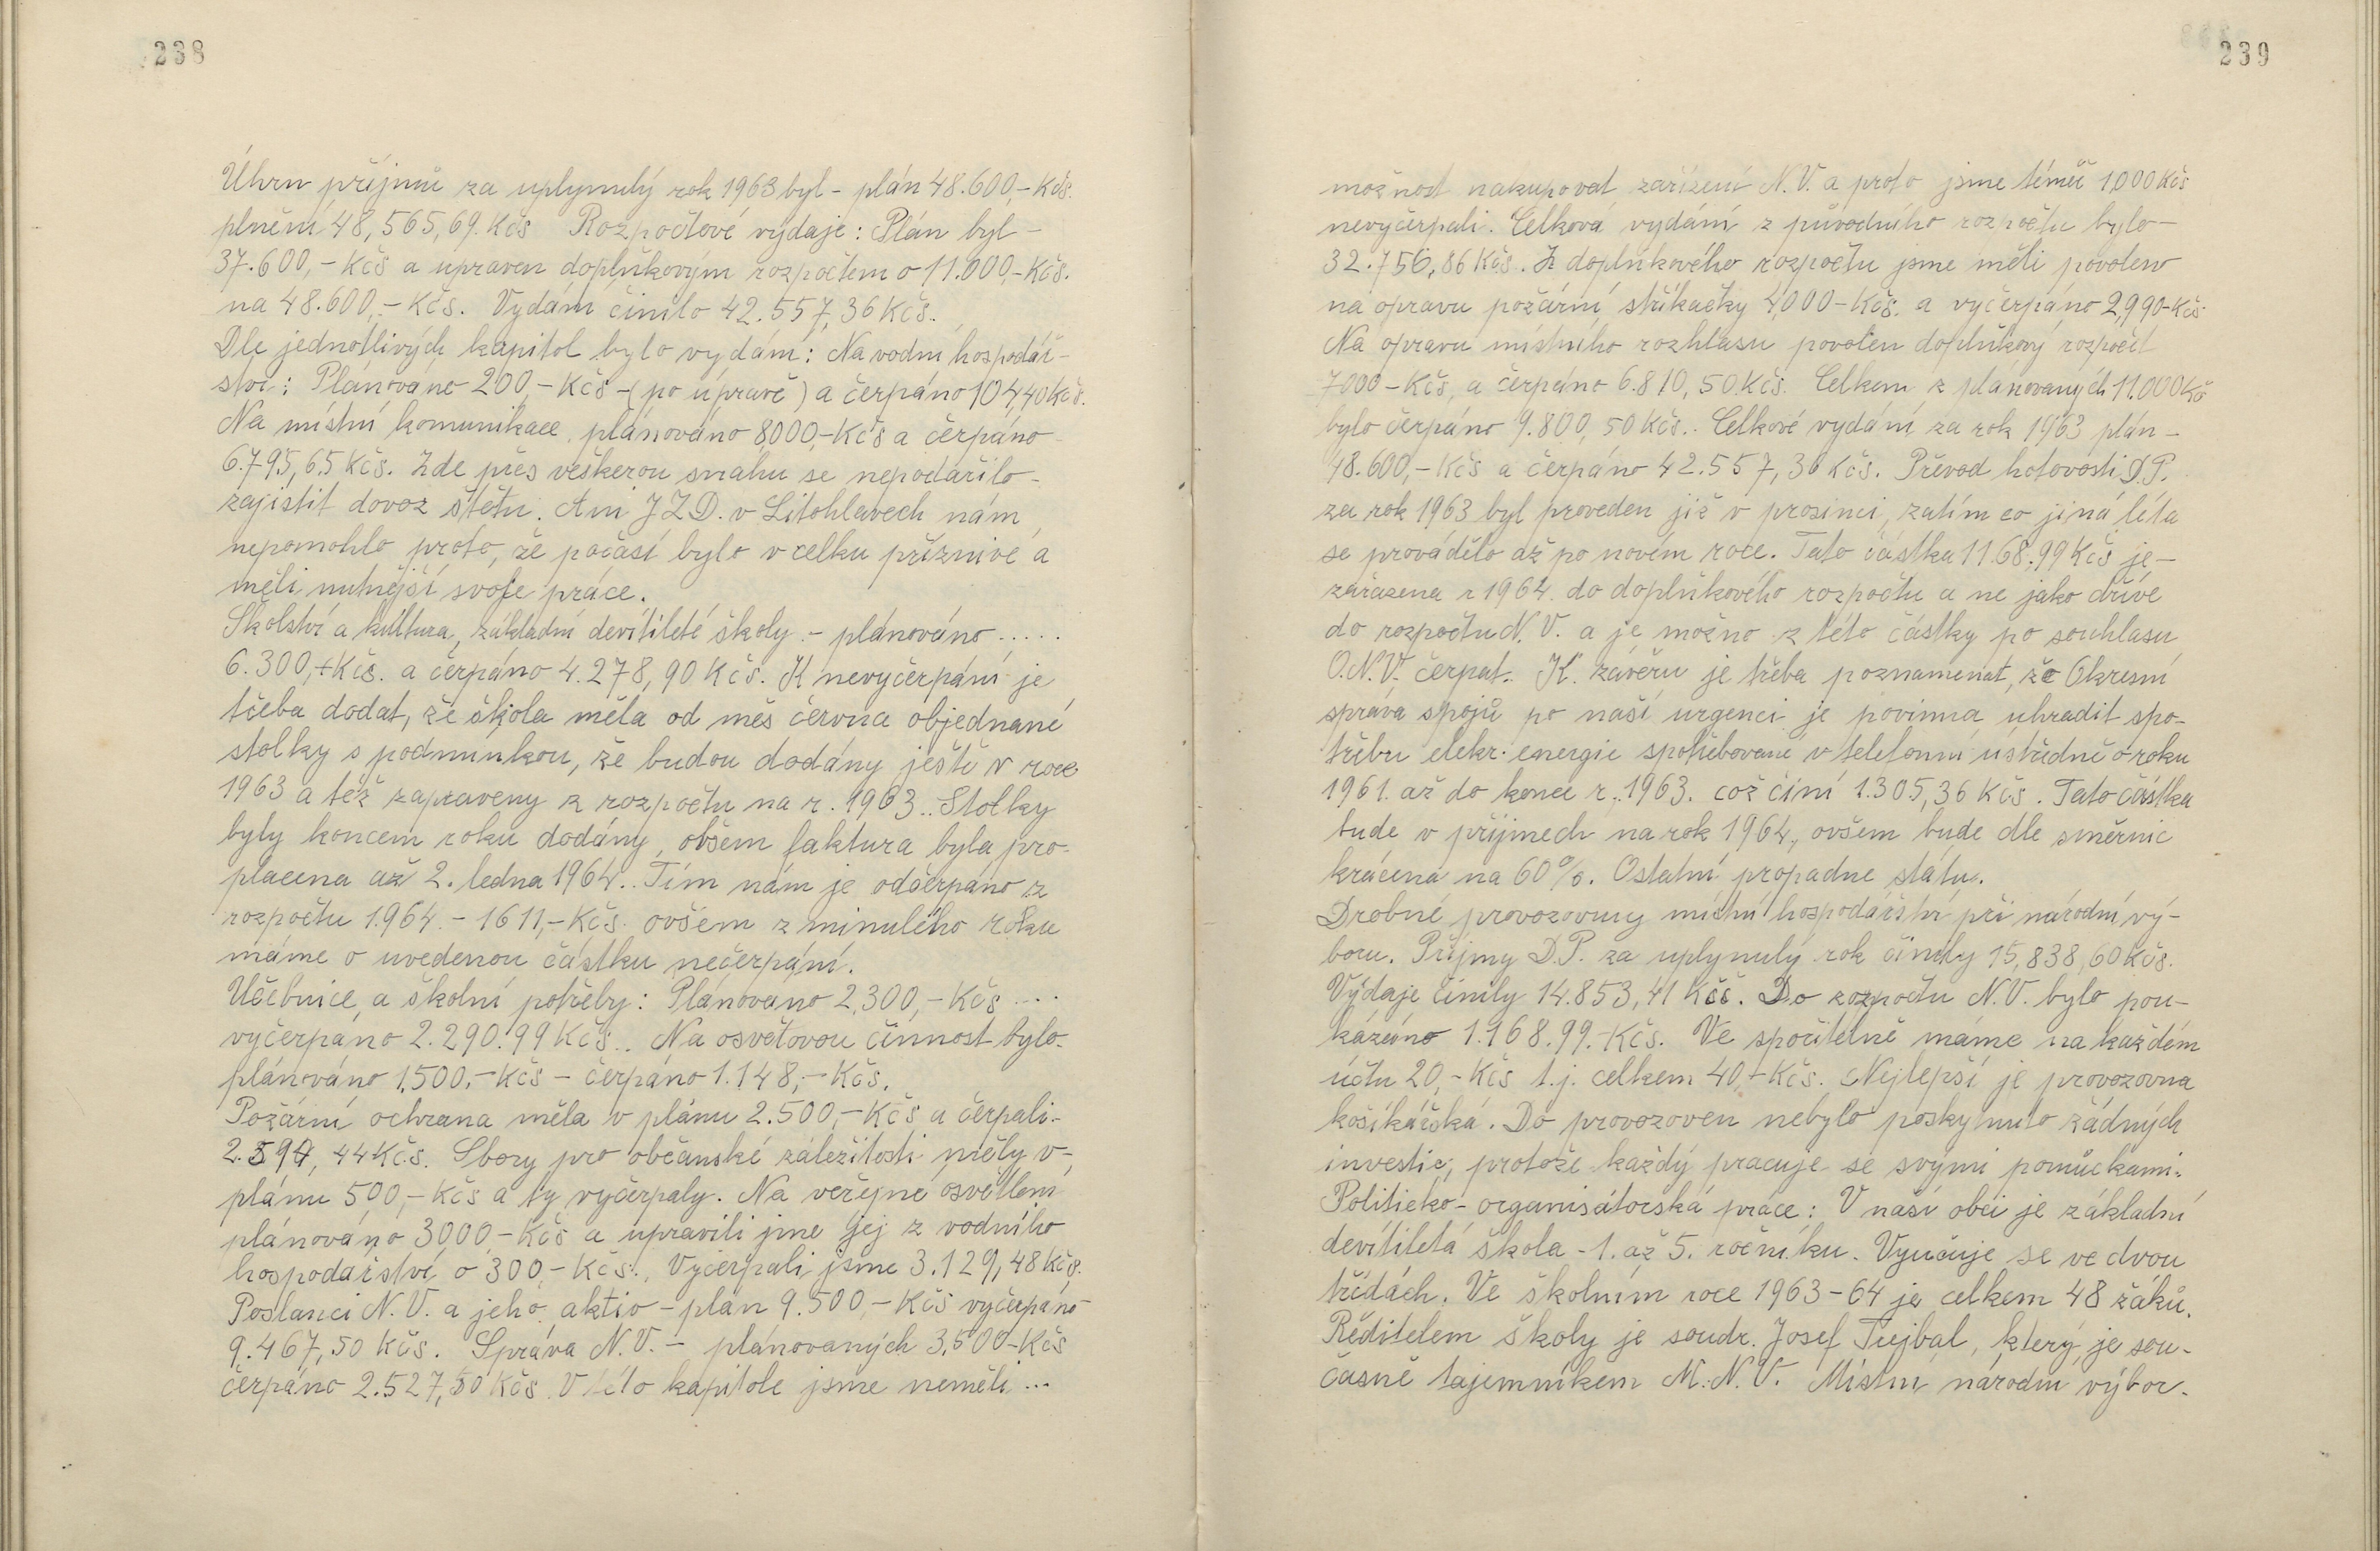 238
Úhrn příjmů za uplynulý rok 1963 byl - plán 48.600,- Kčs.
plnění 48,565,69. Kčs Rozpočtové výdaje: Plán byl -
37.600,- Kčs a upraven doplňkovým rozpočtem o 11.000,- Kčs.
na 48.600,- Kčs. Vydání činilo 42.557,36 Kčs.
Dle jednotlivých kapitol bylo vydání: Na vodní hospodář-
ství: Plánováno 200,- Kčs -(po úpravě) a čerpáno 104,40 Kčs.
Na místní komunikace plánováno 8000,- Kčs a čerpáno -
6.795,65 Kčs. Zde přes veškerou snahu se nepodařilo -
zajistit dovoz štětu. Ani J Z D. v Litohlavech nám
nepomohlo proto, že počasí bylo v celku příznivé a
měli nutnější svoje práce.
Školství a kultura, základní devítileté školy - plánováno.....
6.300,- Kčs. a čerpáno 4.278,90 Kčs. K nevyčerpání je
třeba dodat, že škola měla od měs června objednané
stolky s podmínkou, že budou dodány ještě v roce
1963 a též zapraveny z rozpočtu na r. 1963.. Stolky
byly koncem roku dodány, obšem faktura byla pro-
placena až 2. ledna 1964.. Tím nám je odčerpáno z
rozpočtu 1.964. - 1611,- Kčs. ovšem z minulého roku
máme o uvedenou částku nečerpání.
Učebnice a školní potřeby: Plánováno 2.300,- Kčs....
vyčerpáno 2.290.99 Kčs.. Na osvětovou činnost bylo-
plánováno 1.500,- Kčs - čerpáno 1.148,- Kčs.
Požární ochrana měla v plánu 2.500,- Kčs a čerpali-
2.590,44 Kčs. Sbory pro občanské záležitosti měly v-
plánu 500,- Kčs a ty vyčerpaly. Na veřejné osvětlení
plánováno 3000,- Kčs a upravili jme jej z vodního
hospodářství o 300,- Kčs., Vyčerpali jsme 3.129,48 Kčs.
Poslanci N. V. a jeho aktiv - plán 9.500,- Kčs vyčerpáno-
9.467,50 Kčs. Správa N. V. - plánovaných 3.500-Kčs
čerpáno 2.527,50 Kčs. V této kapitole jsme neměli...
239
možnost nakupovat zařízení N. V. a proto jsme téměř 1,000 Kčs
nevyčerpali. Celková vydání z původního rozpočtu bylo -
32.756,86 Kčs. Z doplňkového rozpočtu jsme měli povoleno
na opravu požární stříkačky 4,000 - Kčs. a vyčerpáno 2,990-Kčs.
Na opravu místního rozhlasu povolen doplňkový rozpočet
7000 - Kčs, a čerpáno 6.810,50 Kčs. Celkem z plánovaných 11.000 Kčs
bylo čerpáno 9.800,50 Kčs.. Celkové vydání za rok 1963 plán -
48.600,- Kčs a čerpáno 42.557,36 Kčs. Převod hotovosti D.P.
za rok 1963 byl proveden již v prosinci, zatím co jiná léta
se provádělo až po novém roce. Tato částka 11.68,99 Kčs je -
zařazena r 1964. do doplňkového rozpočtu a ne jako dříve
do rozpočtu N. V. a je možno z této částky po souhlasu
O.N.V. čerpat. K. závěru je třeba poznamenat, že Okresní
správa spojů po naší urgenci je povinna uhradit spo-
třebu elekr. energie spotřebované v telefonní ústředně o roku
1961. až do konce r. 1963. což činí 1.305,36 Kčs. Tato částka
bude v příjmech na rok 1964, ovšem bude dle směrnic
krácena na 60%. Ostatní propadne státu.
Drobné provozovny místní hospodářství při národní vý-
boru. Příjmy D.P. za uplynulý rok činily 15,838,60 Kčs.
Výdaje činily 14.853,41 Kčs. Do rozpočtu N.V. bylo pou-
kázáno 1.168.99.- Kčs. Ve spořitelně máme na každém
účtu 20,- Kčs t.j. celkem 40,- Kčs. Nejlepší je provozovna
košíkářská. Do provozoven nebylo poskytnuto žádných
investic, protože každý pracuje se svými pomůckami.
Politicko - organisátorská práce: V naší obci je základní
devítiletá škola - 1. až 5. ročníku. Vyučuje se ve dvou
třídách. Ve školním roce 1963-64 je celkem 48 žáků.
Ředitelem školy je soudr. Josef Trejbal, který je sou-
časně tajemníkem M. N. V. Místní národní výbor.